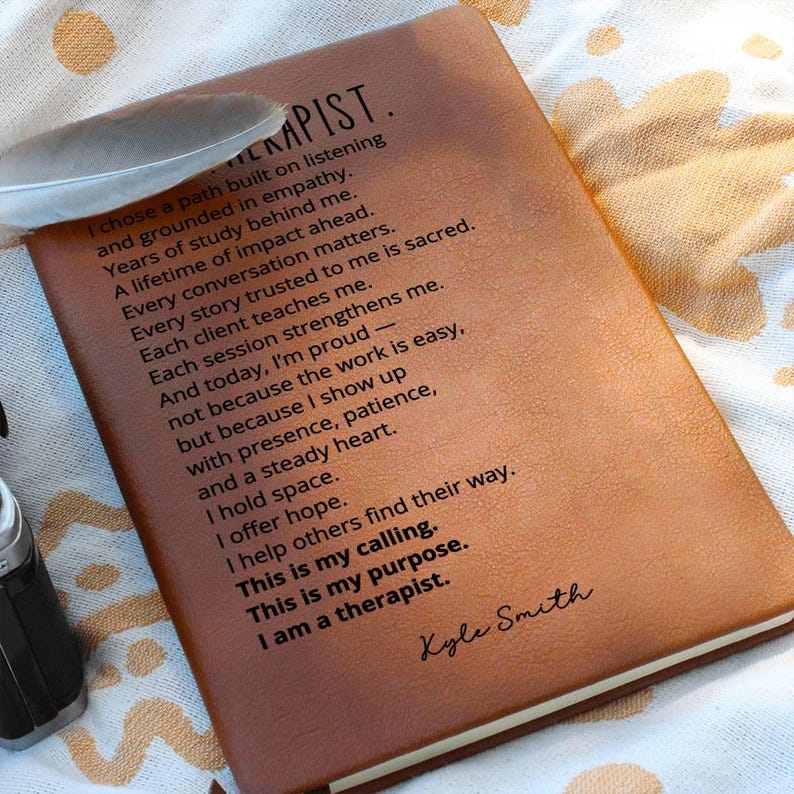 THERAPIST.
I chose a path built on listening
and grounded in empathy.
Years of study behind me.
A lifetime of impact ahead.
Every conversation matters.
Every story trusted to me is sacred.
Each client teaches me.
Each session strengthens me.
And today, I'm proud —
not because the work is easy,
but because I show up
with presence, patience,
and a steady heart.
I hold space.
I offer hope.
I help others find their way.
This is my calling.
This is my purpose.
I am a therapist.
Kyle Smith